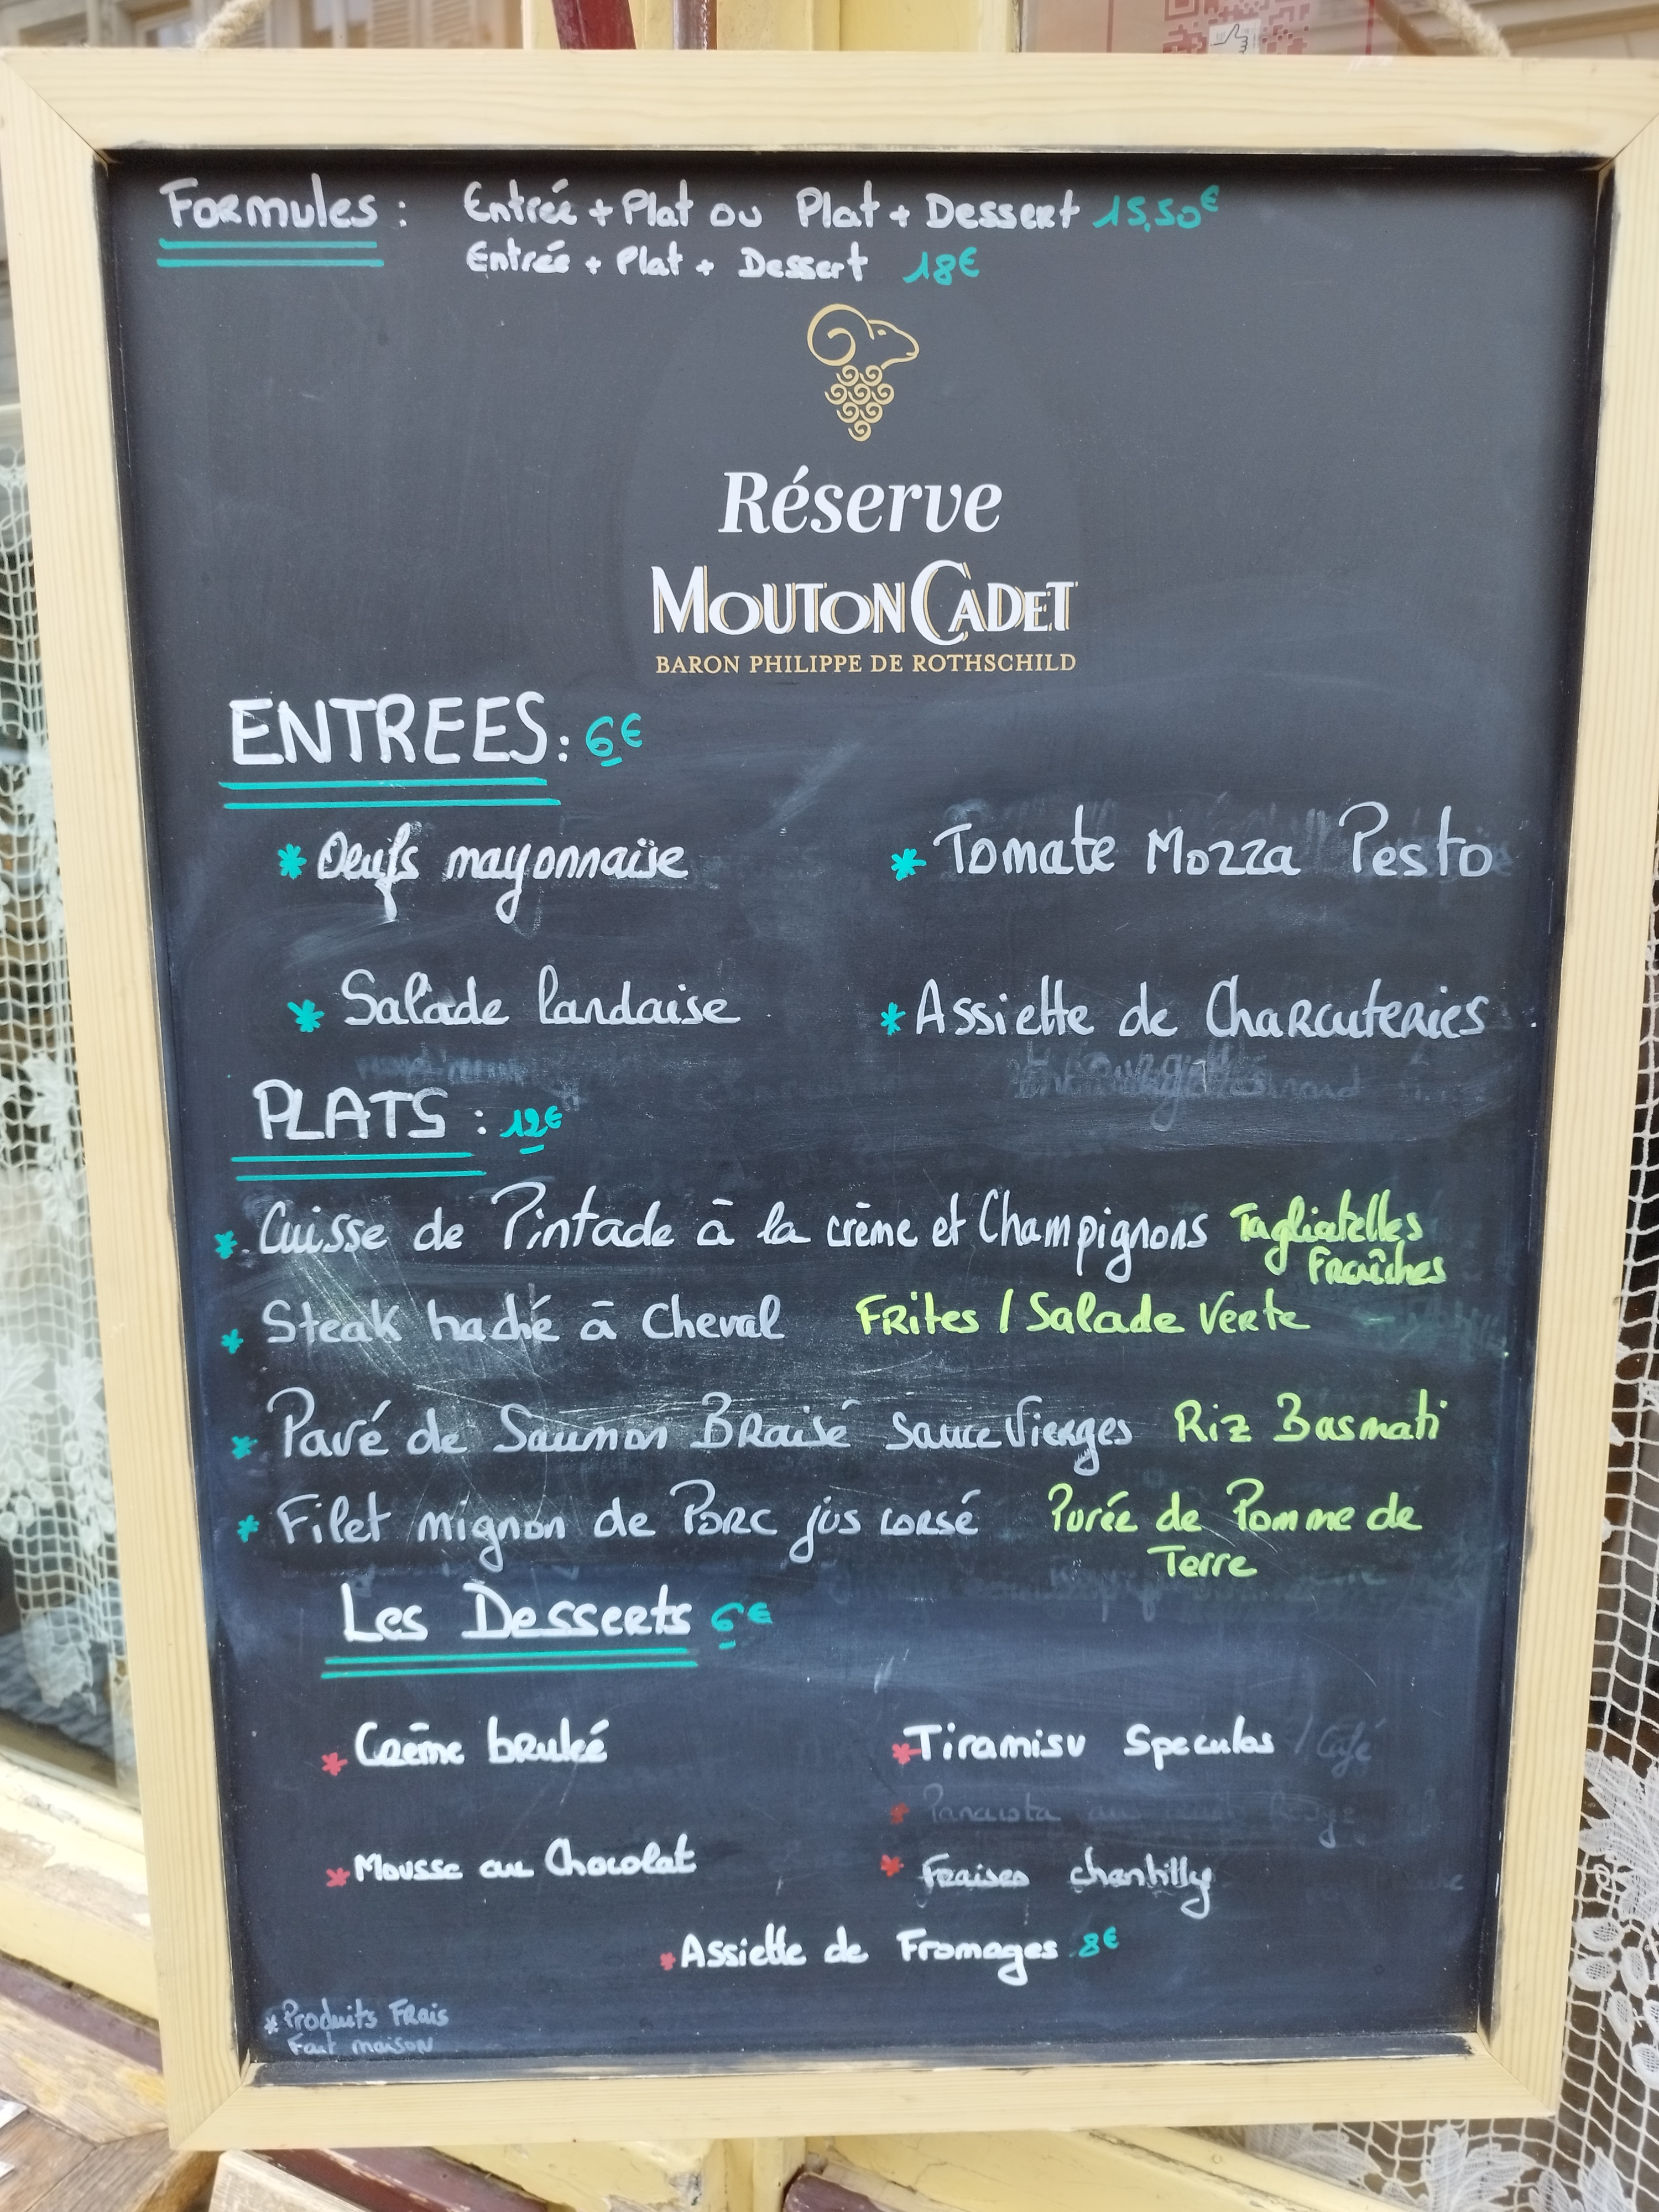 Formules : Entrée + Plat ou Plat + Dessert 15,50€
Entrée + Plat + Dessert 18€
Réserve
MOUTON CADET
BARON PHILIPPE DE ROTHSCHILD
ENTREES : 6€
* Oeufs mayonnaise * Tomate Mozza Pesto
* Salade landaise * Assiette de Charcuteries
PLATS : 12€
* Cuisse de Pintade à la crème et Champignons Tagliatelles
Fraîches
* Steak haché à Cheval Frites / Salade Verte
* Pavé de Saumon Braisé sauce Vierges Riz Basmati
* Filet mignon de Porc jus corsé Purée de Pomme de
Terre
Les Desserts 6€
* Crème brulée * Tiramisu Speculos / Café
* Mousse au Chocolat * Fraises chantilly
* Assiette de Fromages 8€
* Produits Frais
Fait maison